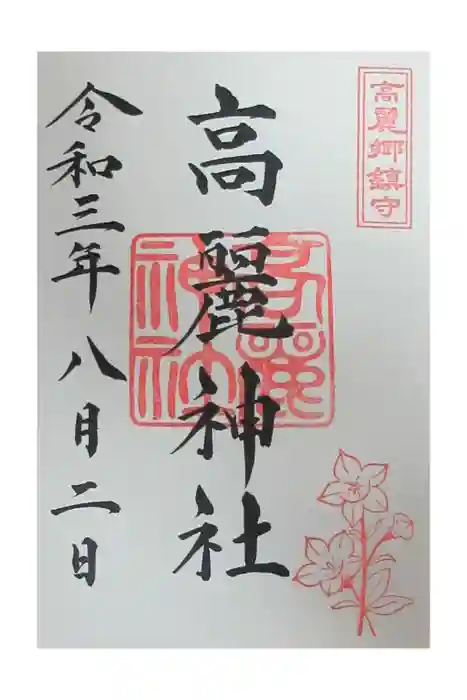 高麗郷鎮守
高麗神社
令和三年八月二日